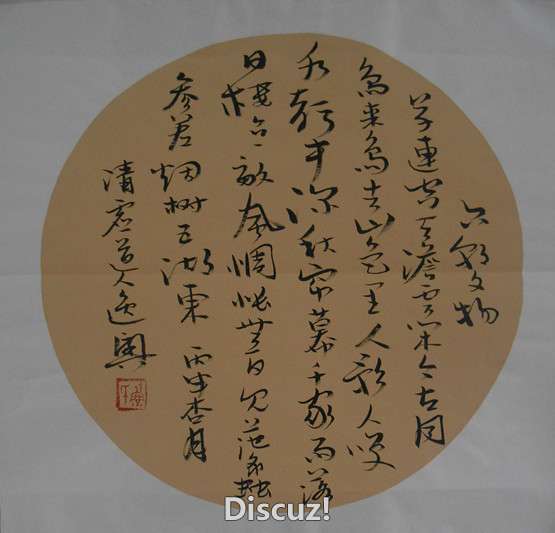 六朝文物
草連空天澹雲閑今古同
鳥來鳥去山色里人歌人哭
水聲中深秋帘幕千家雨落
日樓台一笛風惆悵無因見范蠡
参差烟树五湖東 丙申杏月
清虛道人逸興
Discuz!